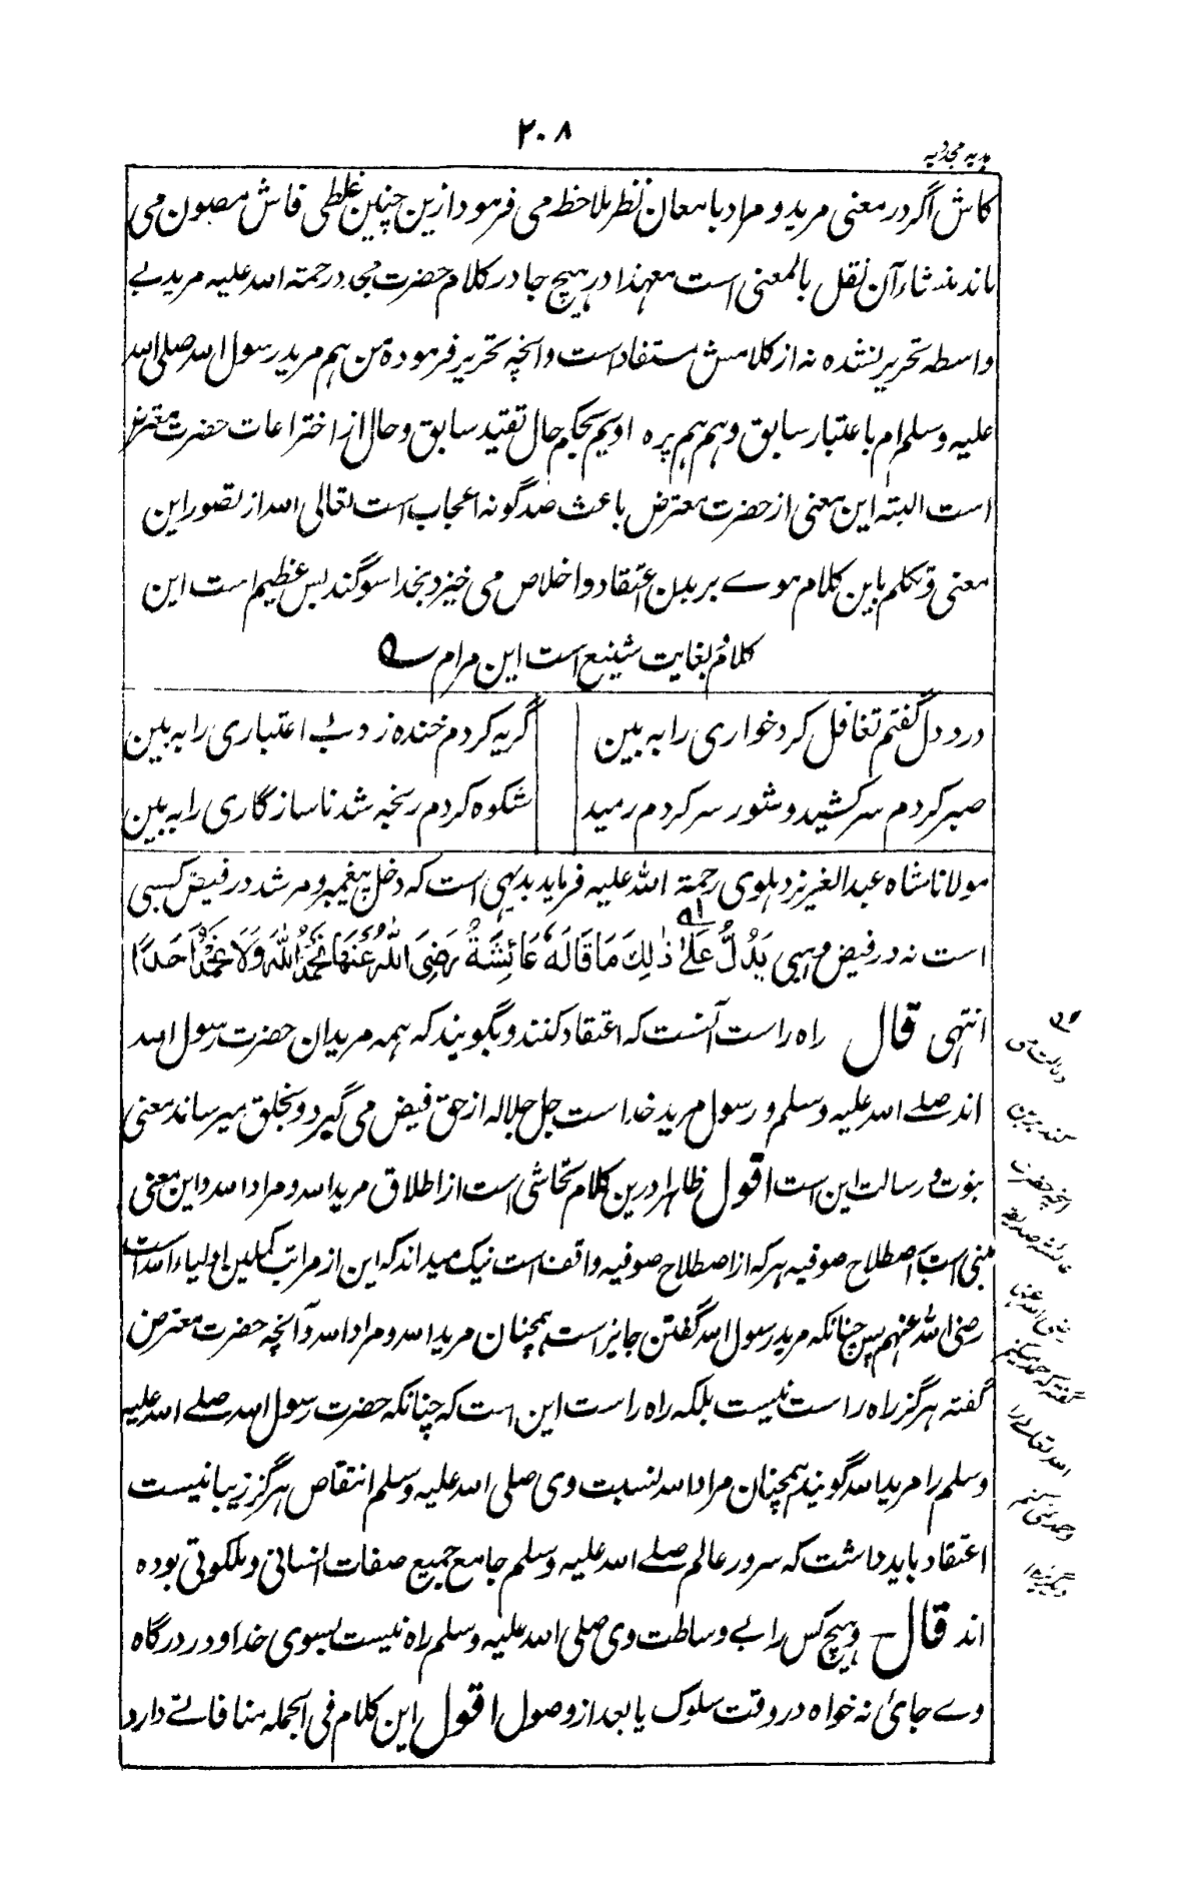 ۲۰۸
ہدیہ مجددیہ
کاش اگر در معنی مرید و مراد بامعان نظر ملاحظہ می فرمود ازین چنین غلطی فاش مصون می
ماند منشاء آن نقل بالمعنی است معہذا در ہیچ جا در کلام حضرت مجدد رحمتہ اللہ علیہ مرید بے
واسطہ تحریر نشدہ نہ از کلامش مستفاد است و انچہ تحریر فرمودہ من ہم مرید رسول اللہ صلی اللہ
علیہ وسلم ام باعتبار سابق و ہم ہم پرہ اویم بحکم حال تقئید سابق و حال از اختراعات حضرت معترض
است البتہ این معنی از حضرت معترض باعث صد گونہ اعجاب است تعالی اللہ از تصور این
معنی و تکلم باین کلام موے بر بدن اعتقاد و اخلاص می خیزد بخدا سوگند بس عظیم است این
کلام بغایت شنیع است این مرام ؎
درد دل گفتم تغافل کرد خواری را بہ بین
گریہ کردم خندہ زد بے اعتباری را بہ بین
صبر کردم سرکشید و شور سر کردم رمید
شکوہ کردم رنجہ شد ناسازگاری را بہ بین
مولانا شاہ عبدالعزیز دہلوی رحمۃ اللہ علیہ فرماید بدیہی است کہ دخل پیغمبر و مرشد در فیض کسبی
است نہ در فیض وہبی یَدُلُّ عَلیٰ ذٰلِکَ مَا قَالَہٗ عَائِشَۃُ رَضِیَ اللّٰہُ عَنْہَا نَحْمَدُ اللّٰہَ وَلَا نَحْمَدُ اَحَدًا
انتہی قال راہ راست آنست کہ اعتقاد کنند و بگویند کہ ہمہ مریدان حضرت رسول اللہ
اند صلے اللہ علیہ وسلم و رسول مرید خدا است جل جلالہ از حق فیض می گیرد و بخلق میرساند معنی
نبوت و رسالت این است اقول ظاہرا درین کلام تحاشی است از اطلاق مرید اللہ و مراد اللہ و این معنی
مبنی است بر اصطلاح صوفیہ ہر کہ از اصطلاح صوفیہ واقف است نیک میداند کہ این از مراتب کملین اولیاء اللہ است
رضی اللہ عنہم پس چنانکہ مرید رسول اللہ گفتن جایز است ہمچنان مرید اللہ و مراد اللہ و آنچہ حضرت معترض
گفتہ ہرگز راہ راست نیست بلکہ راہ راست این است کہ چنانکہ حضرت رسول اللہ صلے اللہ علیہ
وسلم را مرید اللہ گویند ہمچنان مراد اللہ نسبت وی صلی اللہ علیہ وسلم انتقاص ہرگز زیبا نیست
اعتقاد باید داشت کہ سرور عالم صلے اللہ علیہ وسلم جامع جمیع صفات انسانی و ملکوتی بودہ
اند قال و ہیچ کس را بے وساطت وی صلی اللہ علیہ وسلم راہ نیست بسوی خدا و در درگاہ
وے جائ نہ خواہ در وقت سلوک یا بعد از وصول اقول این کلام فی الجملہ منافاتے دارد
دلالت می
کند برین
انچہ حضرت
عائشہ صدیقہ
رضی اللہ عنہا
گفتہ کہ حمد میکنم
اللہ تعالے را
و حمد نمی کنم
دیگریرا